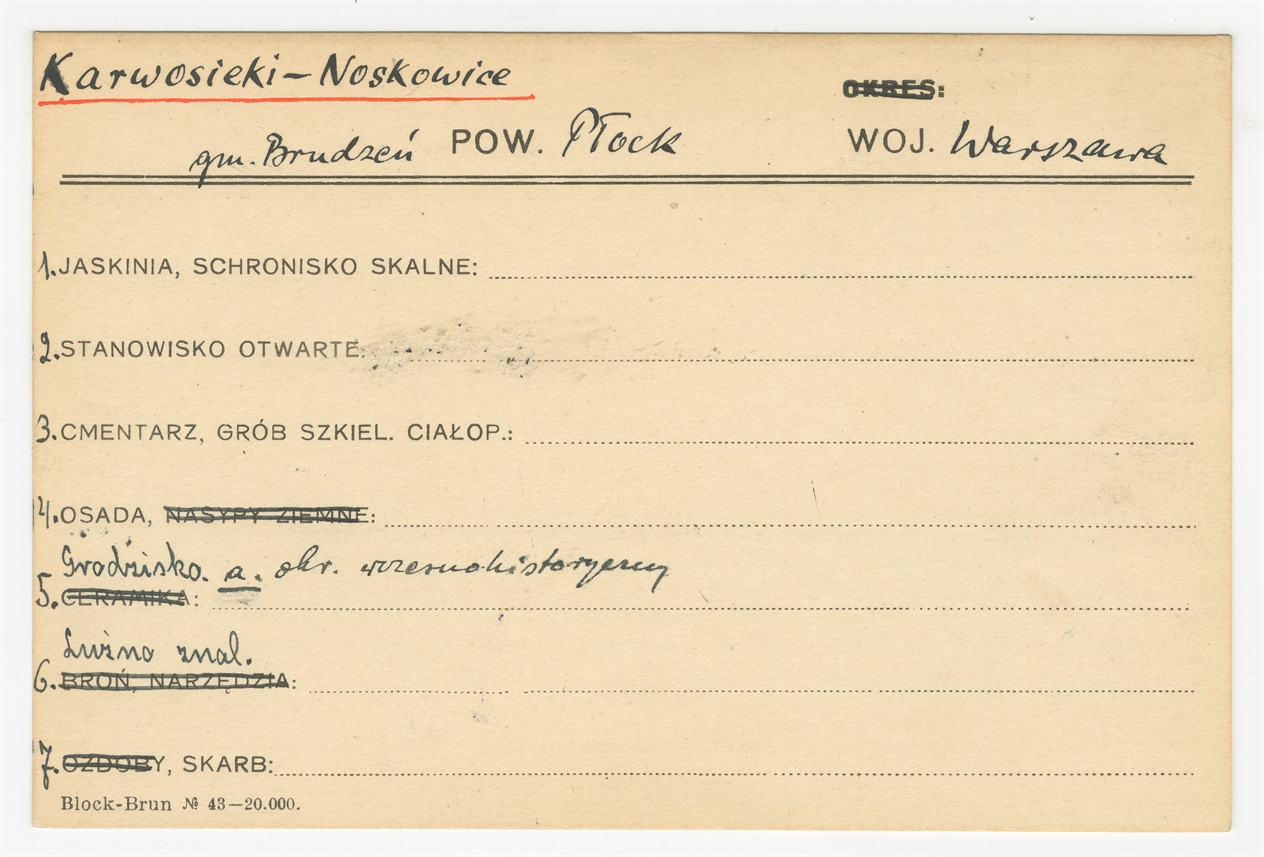 Karwosieki-Noskowice
OKRES:
gm. Brudzeń POW. Płock WOJ. Warszawa
1. JASKINIA, SCHRONISKO SKALNE:
2. STANOWISKO OTWARTE:
3. CMENTARZ, GRÓB SZKIEL. CIAŁOP.:
4. OSADA, NASYPY ZIEMNE:
Grodzisko. a. okr. wczesnohistoryczny
5. CERAMIKA:
Luźno znal.
6. BROŃ, NARZĘDZIA:
7. OZDOBY, SKARB:
Block-Brun № 43—20.000.